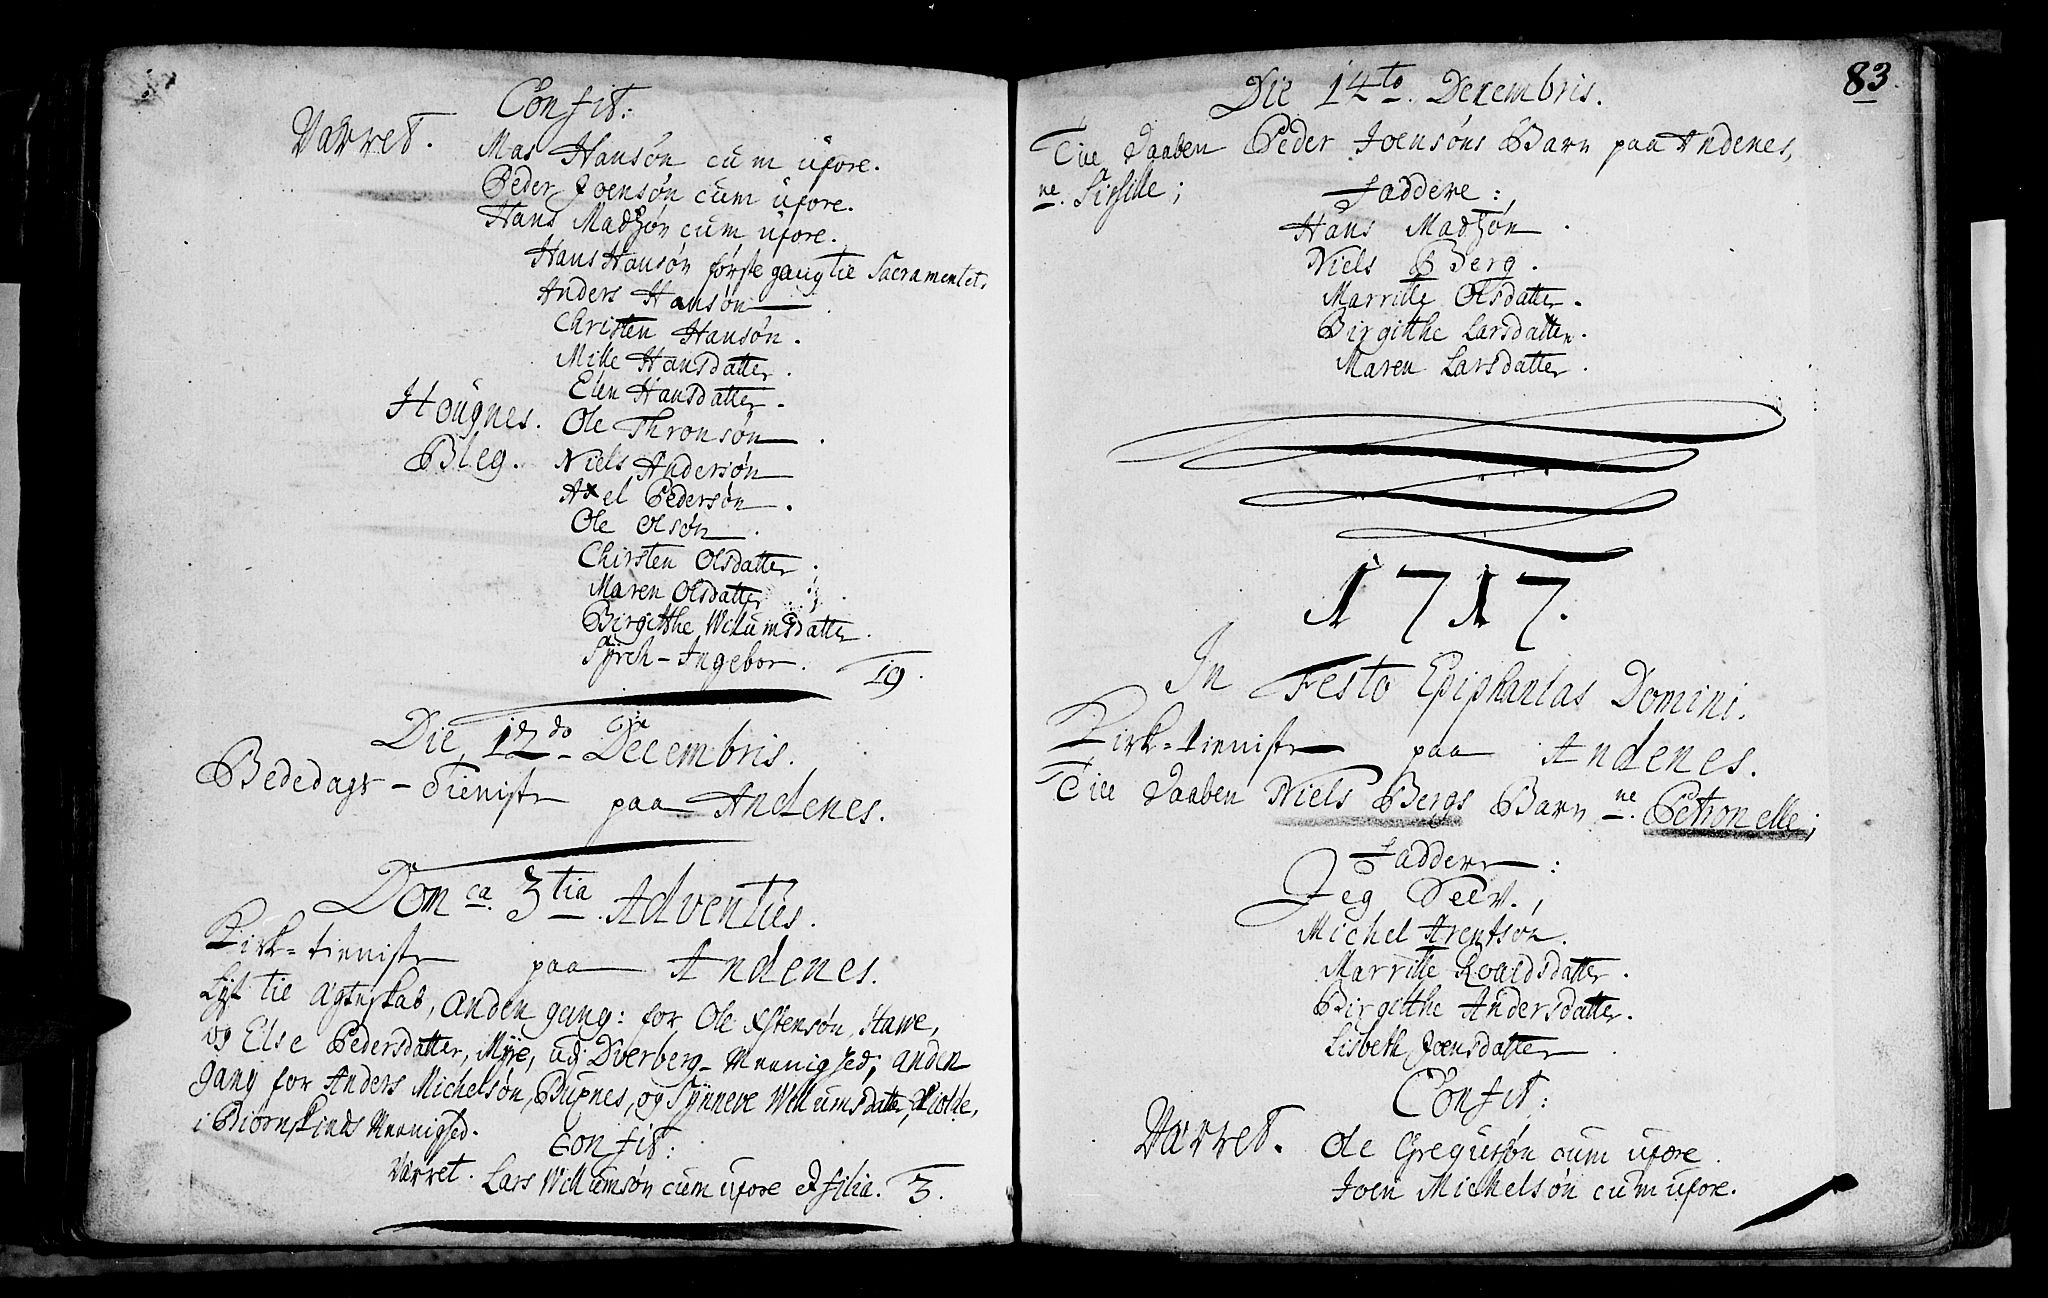 Confit:
Værret. Mas Hansøn cum uxore.
Peder Joensøn cum uxore.
Hans Madzøn cum uxore.
Hans Hansøn første gang til Sacramentet.
Anders Hansøn
Christen Hansøn.
Mille Hansdatter.
Elen Hansdatter.
Hougnes. Ole Thronsøn.
Bleg. Niels Andersøn
Axel Pedersøn.
Ole Olsøn.
Chirsten Olsdatter.
Maren Olsdatter.
Birgitthe Willumsdatter.
Ingebor. 19.
Die 12do Decembris.
Bededags-Tienist paa Andenes.
Domca 3tia Adventus.
Kirk-tienist paa Andenes.
Lyst til ægteskab, anden gang: for Ole Stawe,
og Else Pedersdatter, Myre, udj Dverberg Meenighed; anden
gang for Anders Michelsøn, og Synneve Willumsdatter,
i Biørnskinds Meenighed.
Confit:
Værret. Lars Willumsøn cum uxore et filia. 3.
83.
Die 14to. Decembris.
Til Daaben Peder Joensøns Barn paa Andenes,
ne.
Faddere:
Hans Madzøn.
Niels Berg.
Marritte Olsdatter.
Birgitthe Larsdatter.
Maren Larsdatter.
1717.
In Festo Epiphanias Domini.
Kirk-tienist paa Andenes.
Till Daaben Niels Bergs Barn ne. Petronelle;
Fadder:
Jeg Selv.,
Michel Arentsøn.
Marritte Roaldsdatter.
Birgitthe Andersdatter.
Lisbeth Joensdatter.
Confit:
Værret. Ole Gregusøn cum uxore.
Joen Michelsøn cum uxore.